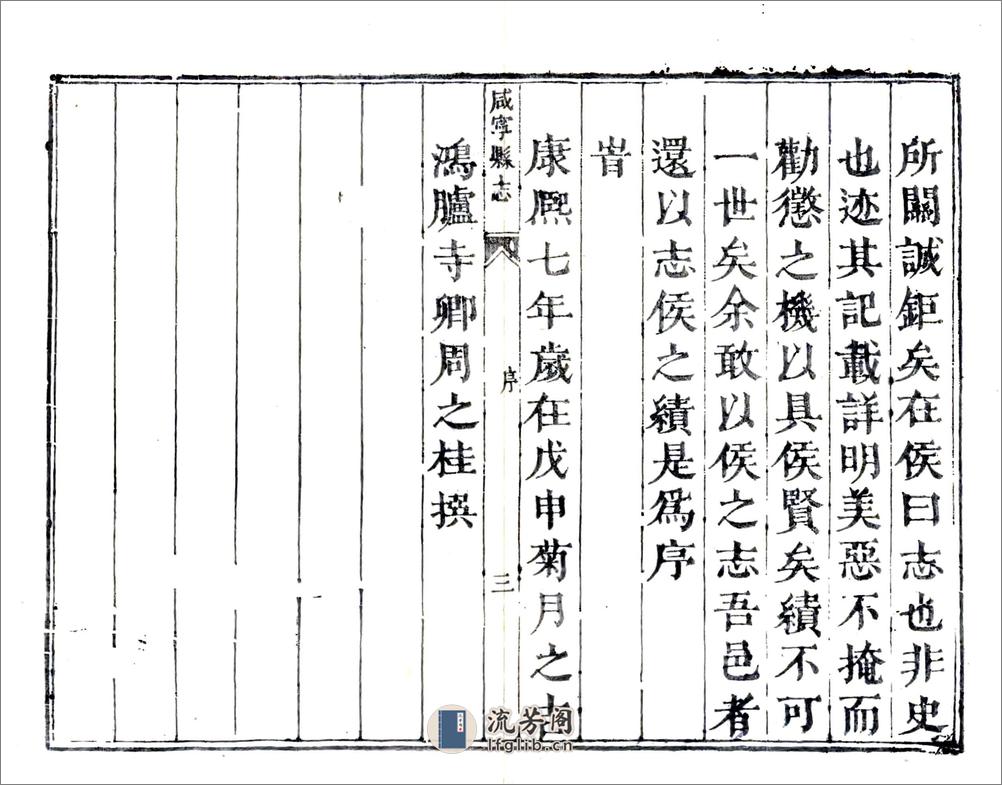 所關誠鉅矣在侯曰志也非史
也迹其記載詳明美惡不掩而
勸懲之機以具侯賢矣績不可
一世矣余敢以侯之志吾邑者
還以志侯之績是爲序
旹
康熈七年歲在戊申菊月之吉
咸寧縣志
序
三
鴻臚寺卿周之桂撰
流芳阁
lfglib.cn